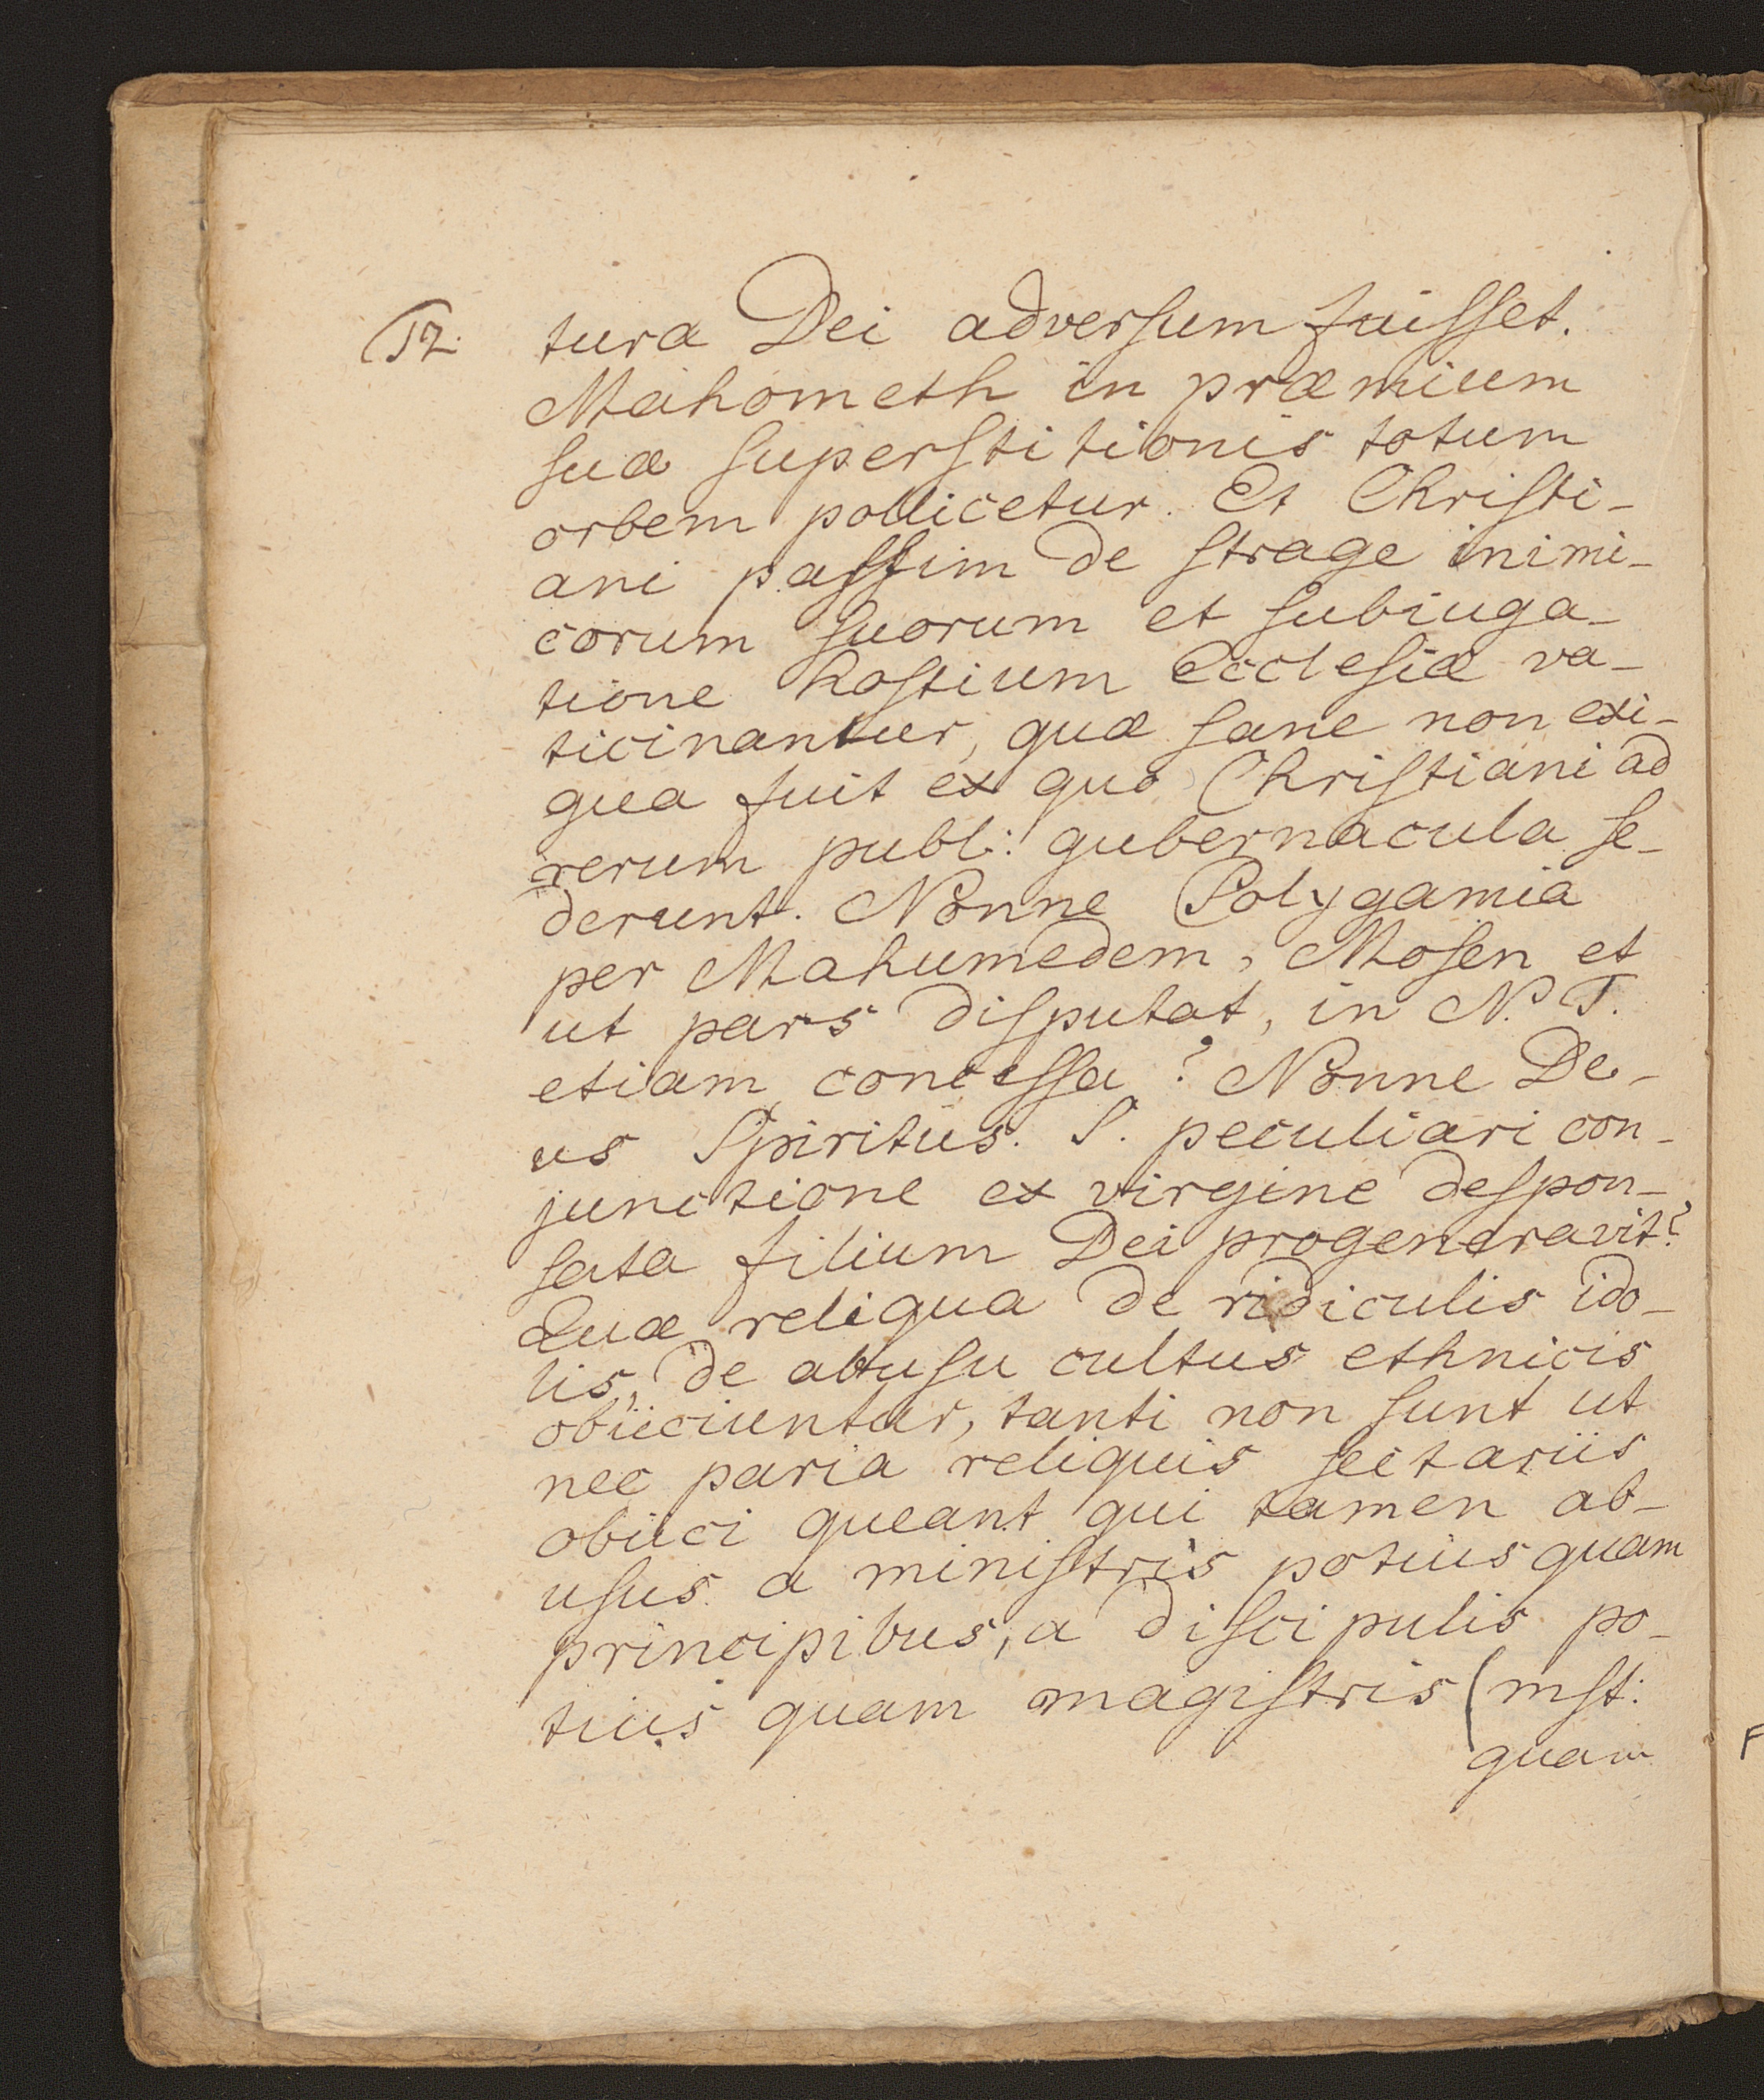 12.
tura Dei adverſum fuiſſet.
Mahometh in præmium
ſuæ ſuperſtitionis totum
orbem pollicetur. Et Chriſti-
ani paſſim de ſtrage inimi-
corum ſuorum et ſubiuga-
tione hoſtium Eccleſiæ va-
ticinantur, quæ ſane non exi-
gua fuit ex quo Chriſtiani ad
rerum publ: gubernacula ſe-
derunt. Nonne Polygamia
per Mahumedem, Moſen et
ut pars diſputat, in N. T.
etiam conceſſa? Nonne De-
us Spiritus. S. peculiari con-
junctione ex virgine deſpon-
ſata filium Dei progeneravit?
Quæ reliqua de ridiculis ido-
lis, de abuſu cultus ethnicis
obiiciuntur, tanti non ſunt ut
nec paria reliquis ſectariis
obiici queant qui tamen ab-
uſus a miniſtris potius quam
principibus, a diſcipulis po-
tius quam magiſtris (mſt:
quam